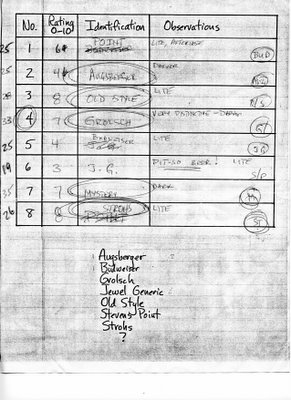 No. Rating 0-10 Identification Observations
25 1 6 POINT LITE, AFTERTASTE BUD
25 2 4 AUGSBURGER DARKER
28 3 8 OLD STYLE LITE O/S
33 4 7 GROLSCH VERY DISTINCTIVE - DARK
25 5 4 BUDWEISER LITE JG
19 6 3 J.G. PIT-SO BEER! LITE S/P
35 7 7 MYSTERY DARK
26 8 8 STROHS LITE ST
Augsberger
Budweiser
Grolsch
Jewel Generic
Old Style
Stevens Point
Strohs
?